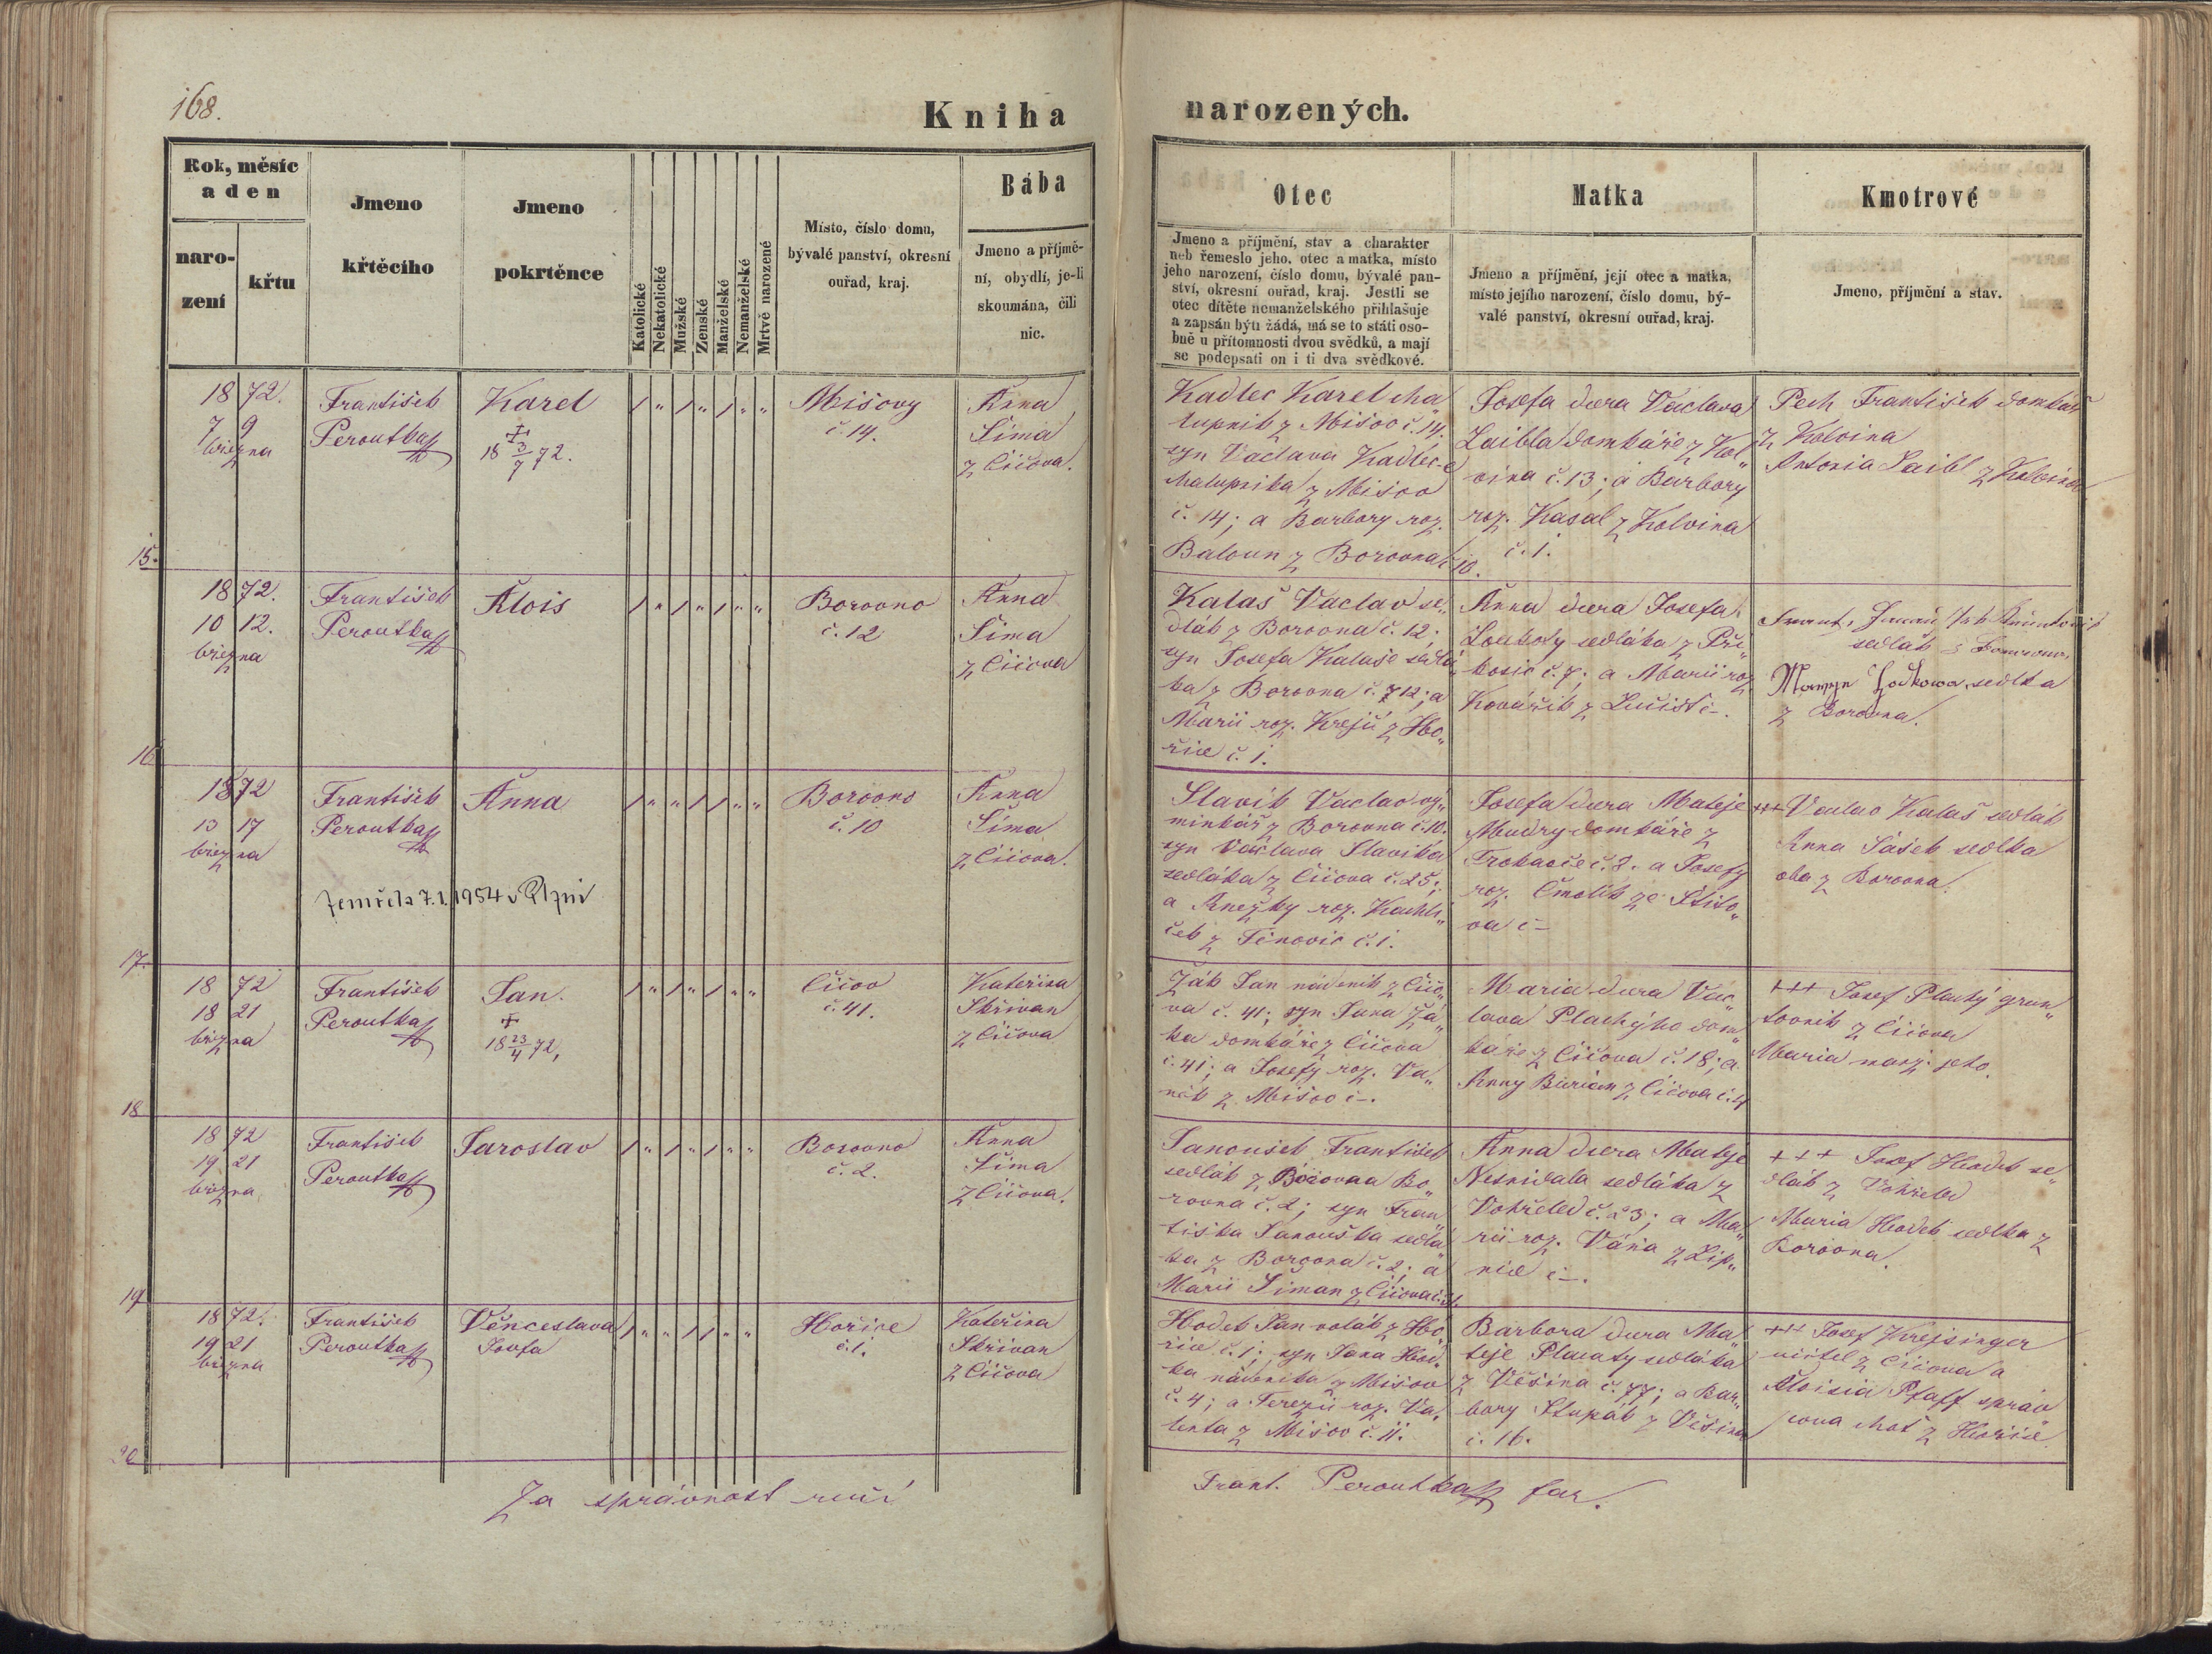 168.
Kniha narozených.
Rok, měsíc
a den
naro-
zení
křtu
Jmeno
křtěcího
Jmeno
pokrtěnce
Katolické
Nekatolické
Mužské
Zenské
Manželské
Nemanželské
Mrtvě narozené
Místo, číslo domu,
bývalé panství, okresní
ouřad, kraj.
Bába
Jmeno a příjmě-
ní, obydlí, je-li
skoumána, čili
nic.
Otec
Jmeno a příjmění, stav a charakter
neb řemeslo jeho, otec a matka, místo
jeho narození, číslo domu, bývalé pan-
ství, okresní ouřad, kraj. Jestli se
otec dítěte nemanželského přihlašuje
a zapsán býti žádá, má se to státi oso-
bně u přítomnosti dvou svědků, a mají
se podepsati on i ti dva svědkové.
Matka
Jmeno a příjmění, její otec a matka,
místo jejího narození, číslo domu, bý-
valé panství, okresní ouřad, kraj.
Kmotrové
Jmeno, příjmění a stav.
1872.
7 9
března
František
Peroutka
Karel
+
18 3/7 72.
Mišovy
č. 14.
Anna
Šíma
z Čičova.
Kadlec Karel cha
lupník z Mišov č. 14.
syn Václava Kadlec-e
chalupníka z Mišov
č. 14; a Barbory roz.
Baloun z Borovna č. 10.
Josefa dcera Václava
Laibla domkáře z Kol"
vína č. 13; a Barbory
roz. Kasal z Kolvína
č. 1.
Pech František domkář
z Kolvína
Antonia Laibl z Kolvína
15.
1872.
10 12.
března
František
Peroutka
Alois
Borovno
č. 12
Anna
Šíma
z Čičova
Kalaš Václav se"
dlák z Borovna č. 12;
syn Josefa Kalaše sedlá"
ka z Borovna č. 12; a
Marii roz. Krejčí z Ho"
řic č. 1.
Anna dcera Josefa
Loukoty sedláka z Při"
kosic č. 7; a Marii roz.
Kovářík z Lučišť č –.
sedlák
sedlka
z Borovna.
16.
1872
13 17
března
František
Peroutka
Anna
Zemřela 7.1.1954 v Plzni
Borovno
č. 10
Anna
Šíma
z Čičova.
Slavík Václav vý"
minkář z Borovna č. 10.
syn Václava Slavíka
sedláka z Čičova č. 25;
a Anežky roz. Kuchli"
ček z Těnovic č. 1.
Josefa dcera Mateje
Mudry domkáře z
Trokavče č. 2. a Josefy
roz. Čmolík ze Štito"
va č –
+++ Václav Kalaš sedlák
Anna Šašek sedlka
oba z Borovna.
17.
1872
18 21
března
František
Peroutka
Jan.
+
18 23/4 72,
Čičov
č. 41.
Kateřina
Skřivan
z Čičova
Žák Jan nádeník z Čičo"
va č. 41; syn Jana Žá"
ka domkáře z Čičova
č. 41; a Josefy roz. Va"
něk z Mišov č –.
Maria dcera Vác"
lava Plachýho dom"
káře z Čičova č. 18; a
Anny Burian z Čičova č. 4
+++ Josef Plachý grun"
tovník z Čičova
Maria manž. jeho.
18
1872
19 21
března
František
Peroutka
Jaroslav
Borovno
č. 2.
Anna
Šíma
z Čičova.
Janoušek František
sedlák z Borovna Bo"
rovna č. 2; syn Fran"
tiška Janouška sedlá"
ka z Borovna č. 2; a
Marii Šiman z Čičova
Anna dcera Mateje
Nesnídala sedláka z
Vohřeled č. 23; a Ma"
rii roz. Váňa z Lip"
nice č –.
+++ Josef Hodek se"
dlák z Vohřeled
Maria Hodek sedlka z
Borovna.
19
1872.
19 21
března
František
Peroutka
Věnceslava
Josefa
Hořice
č. 1.
Kateřina
Skřivan
z Čičova
Hodek Jan rolák z Ho"
řic č. 1; syn Jana Hod"
ka nádeníka z Mišov
č. 4; a Terezii roz. Va"
lenta z Mišov č. 11.
Barbora dcera Ma"
teje Placaty sedláka
z Věšína č. 77; a Bar"
bory Stupák z Věšína
č. 16.
+++ Josef Krejsinger
učitel z Čičova a
Aloisia Pfaff správ
cova choť z Hořic.
20
Za správnost ručí
Frant. Peroutka far.